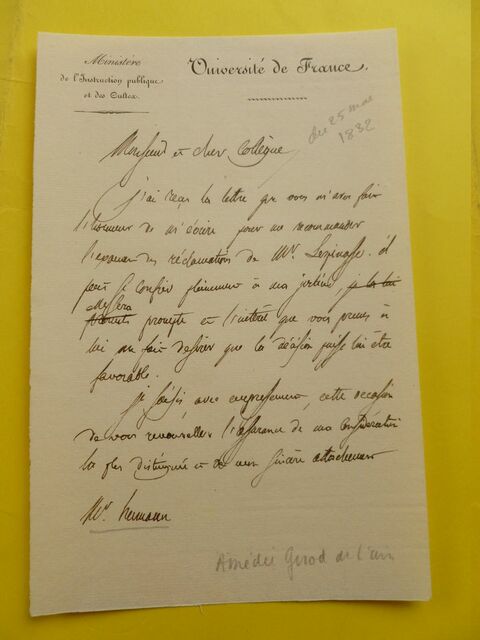 Ministère
de l'Instruction publique
et des Cultes.
Université de France.
du 25 mai
1832
Monsieur et cher Collègue
J'ai reçu la lettre que vous m'avez fait
l'honneur de m'écrire pour me recommander
l'examen des réclamations de Mr. Lespinasse. il
peut se confier pleinement à ma justice, je la lui
elle sera
promets prompte et l'intérêt que vous prenez à
lui me fait desirer que la décision puisse lui être
favorable.
je saisis avec empressement, cette occasion
de vous renouveller l'assurance de ma considération
la plus distinguée et de mon sincère attachement
Mr. hermann
Amédée Girod de l'ain